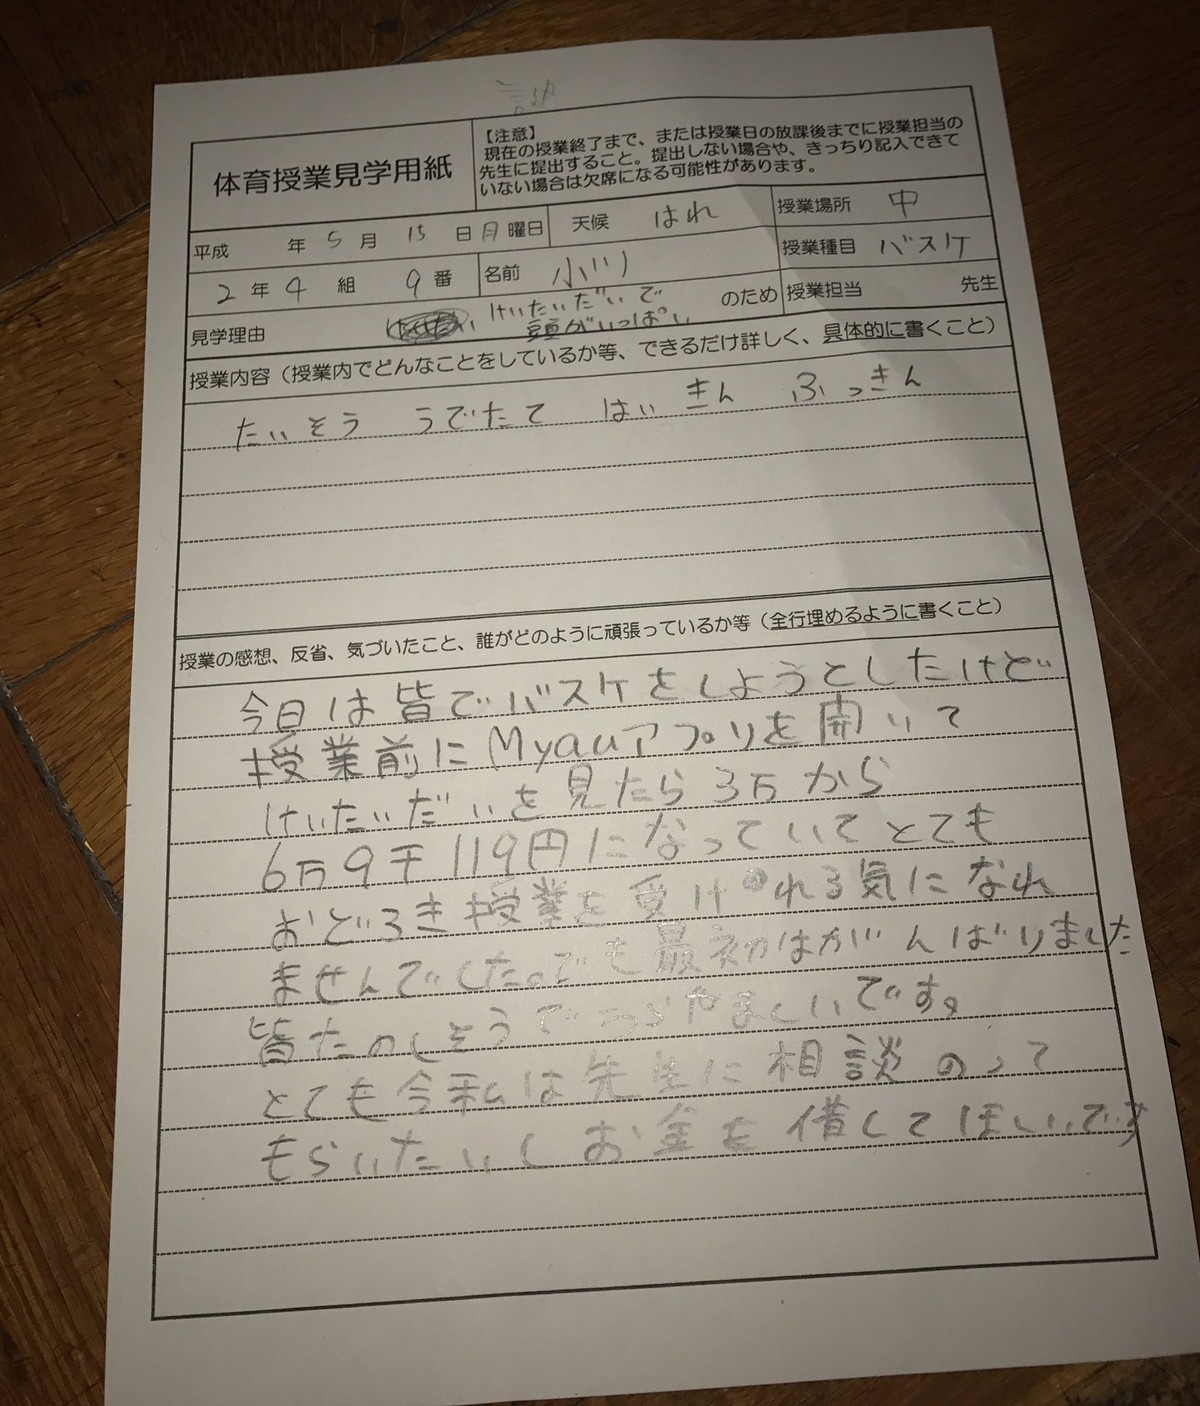 体育授業見学用紙
【注意】
現在の授業終了まで、または授業日の放課後までに授業担当の
先生に提出すること。提出しない場合や、きっちり記入できて
いない場合は欠席になる可能性があります。
平成 年 5 月 15 日 月 曜日 天候 はれ 授業場所 中
2 年 4 組 9 番 名前 小川 授業種目 バスケ
見学理由 けいたいだいで
頭がいっぱい のため 授業担当 先生
授業内容（授業内でどんなことをしているか等、できるだけ詳しく、具体的に書くこと）
たいそう うでたて はいきん ふっきん
授業の感想、反省、気づいたこと、誰がどのように頑張っているか等（全行埋めるように書くこと）
今日は皆でバスケをしようとしたけど
授業前にMyauアプリを開いて
けいたいだいを見たら3万から
6万9千119円になっていてとても
おどろき授業を受けれる気になれ
ませんでした。でも最初はがんばりました
皆たのしそうでうらやましいです。
とても今私は先生に相談のって
もらいたいしお金を借してほしいです